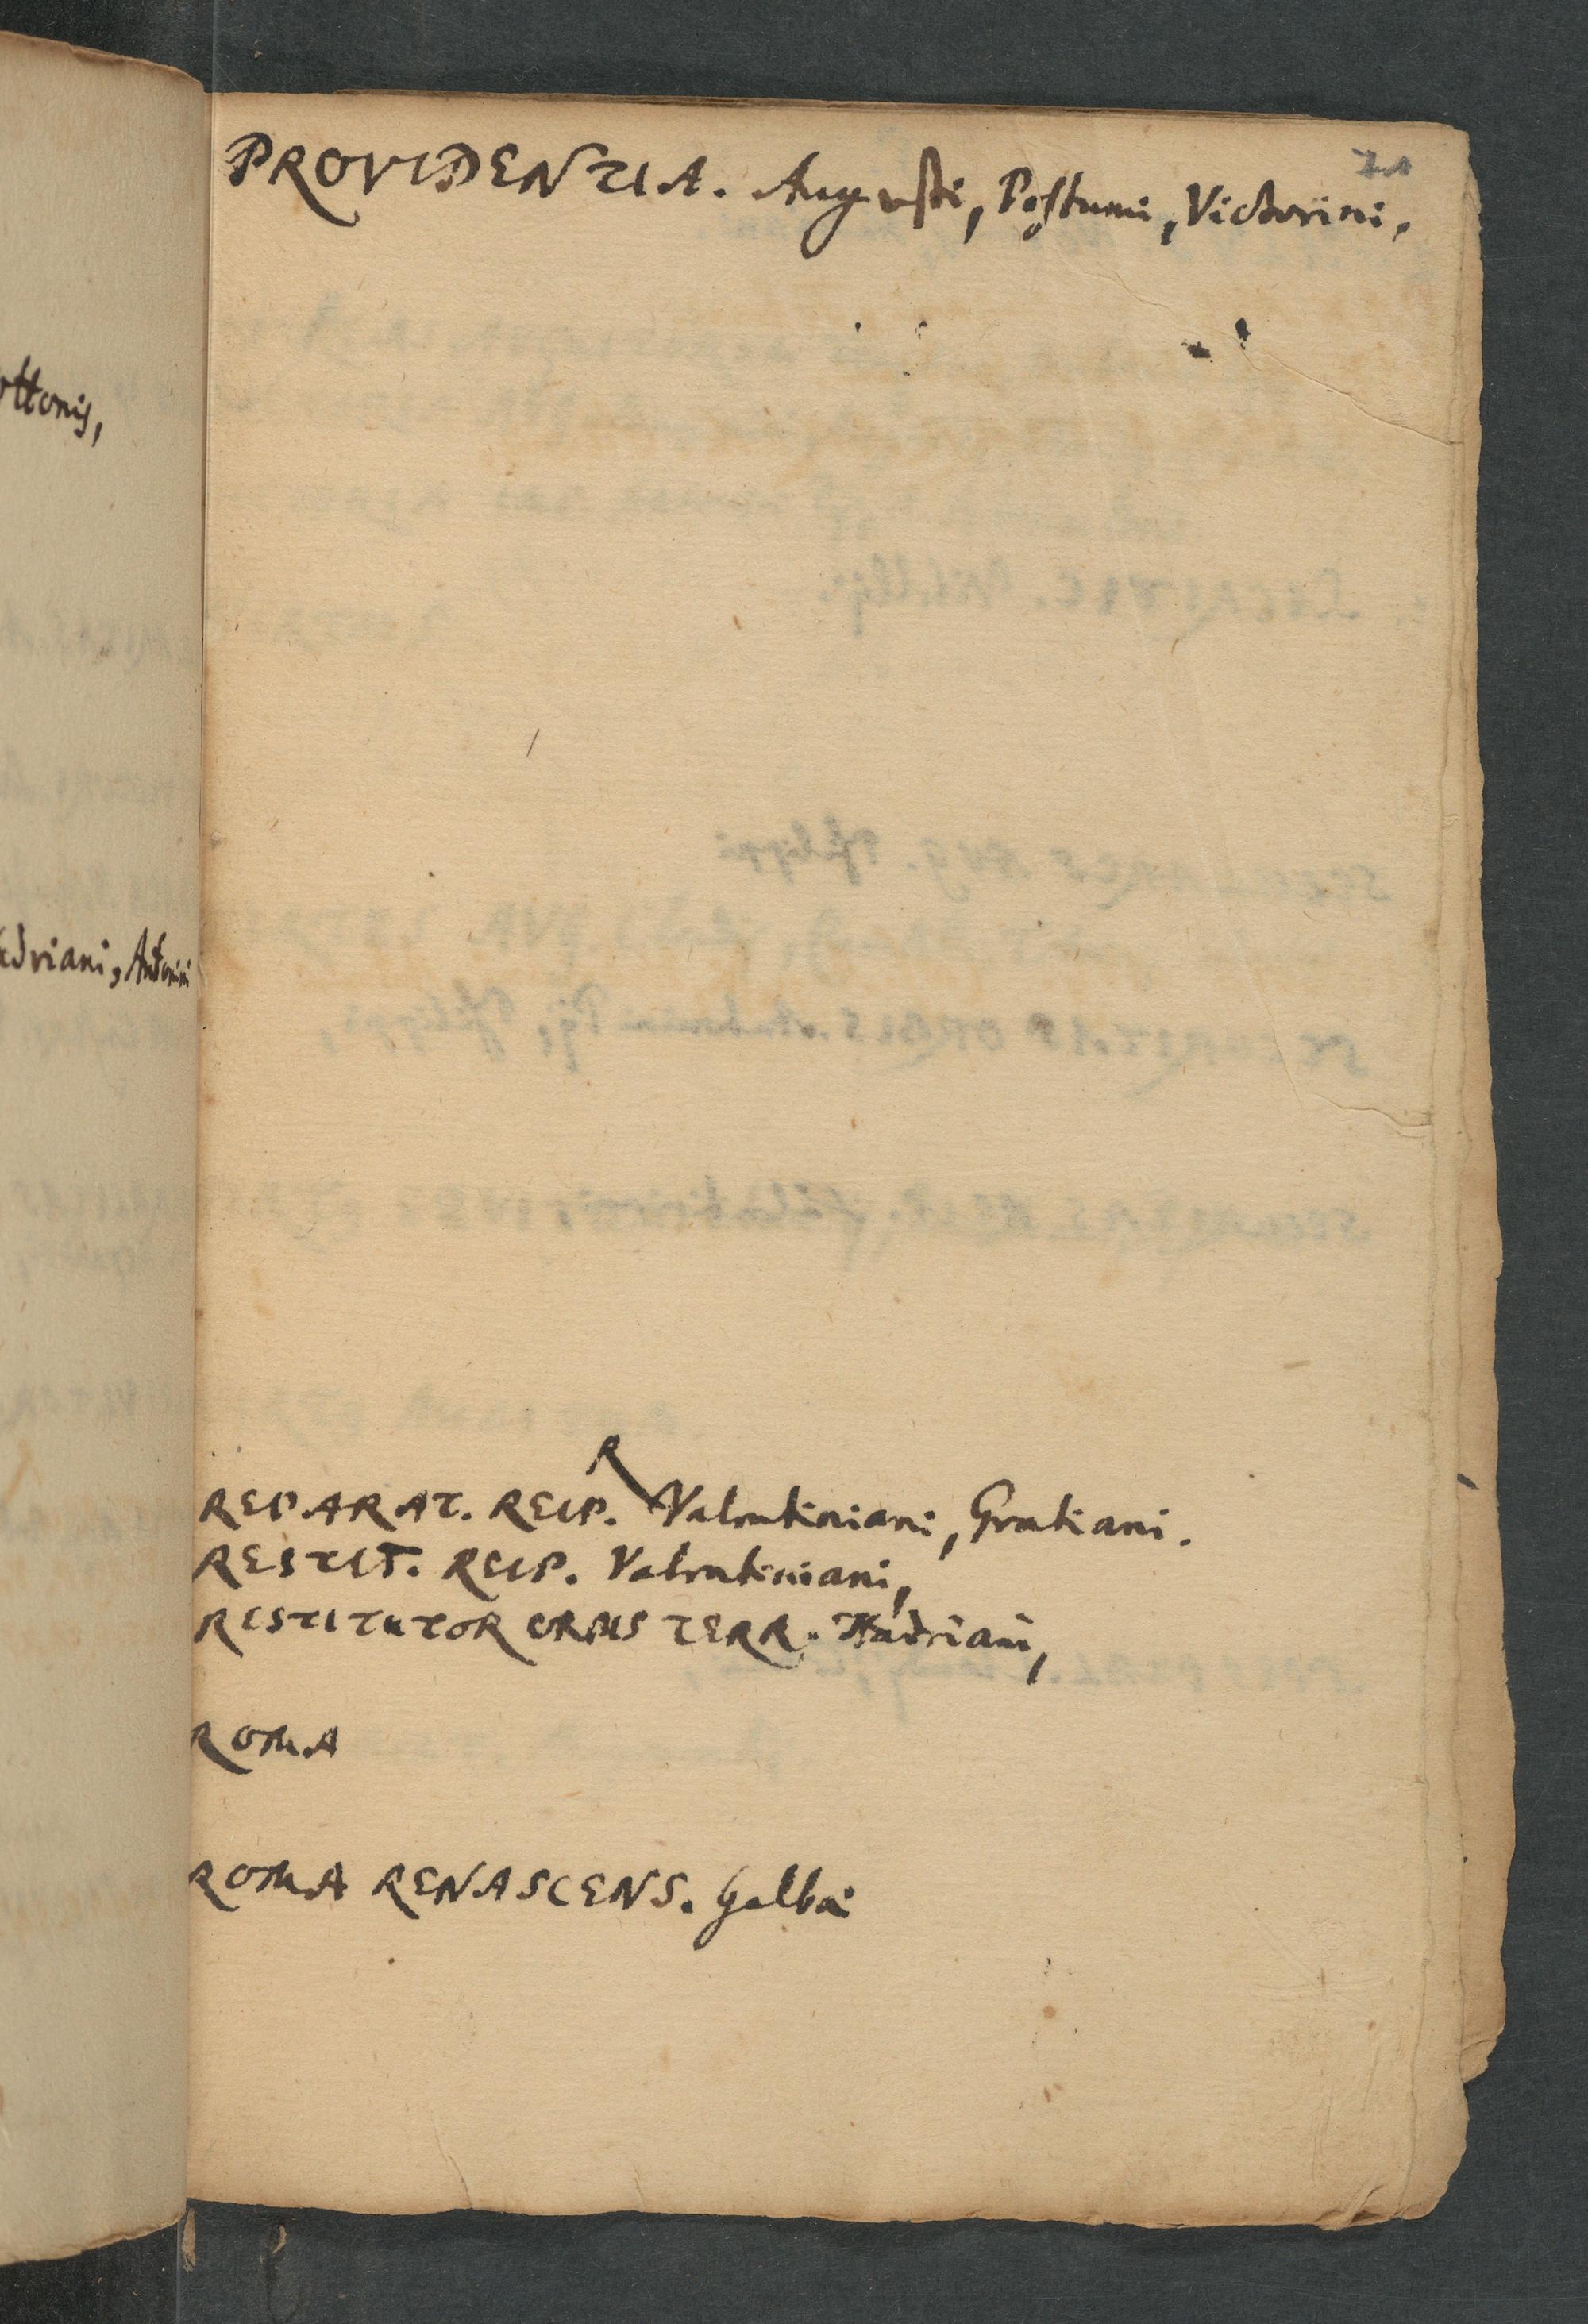 ottonis,
adriani, Antonini
71
PROVIDENTIA. Augusti, Postumi, Victorini,
R
REPARAT. REIP. Valentiniani, Gratiani.
RESTIT. REIP. Valentiniani,
RESTITUTOR ORBIS TERR. Hadriani,
ROMA
ROMA RENASCENS. Galbæ